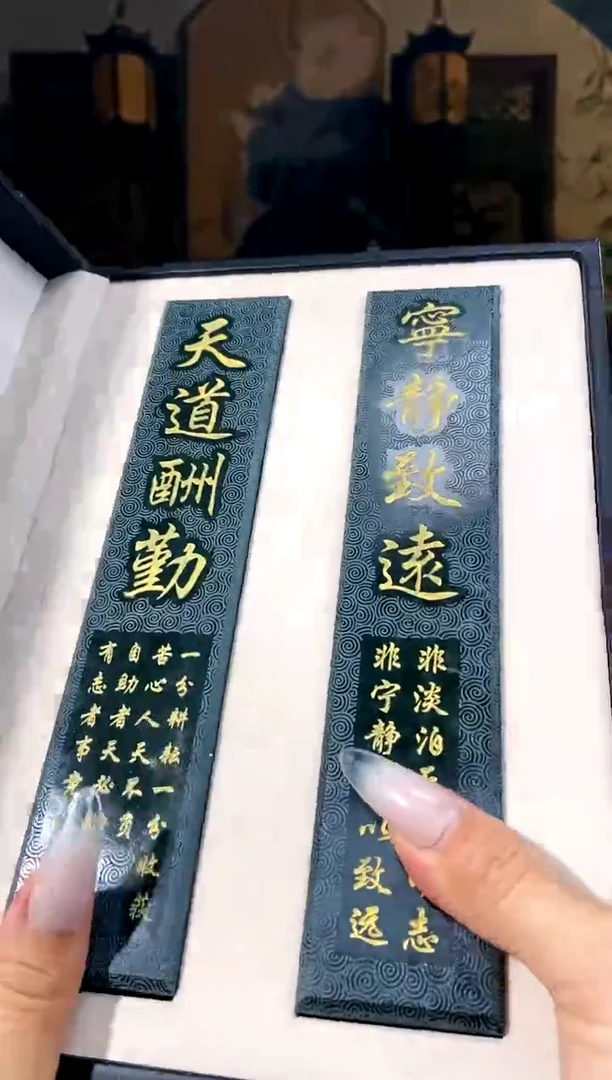 寧靜致遠
非淡泊无志
非宁静以致远
天道酬勤
一分耕耘一分收穫
苦心人天不负
自助者天必
有志者事